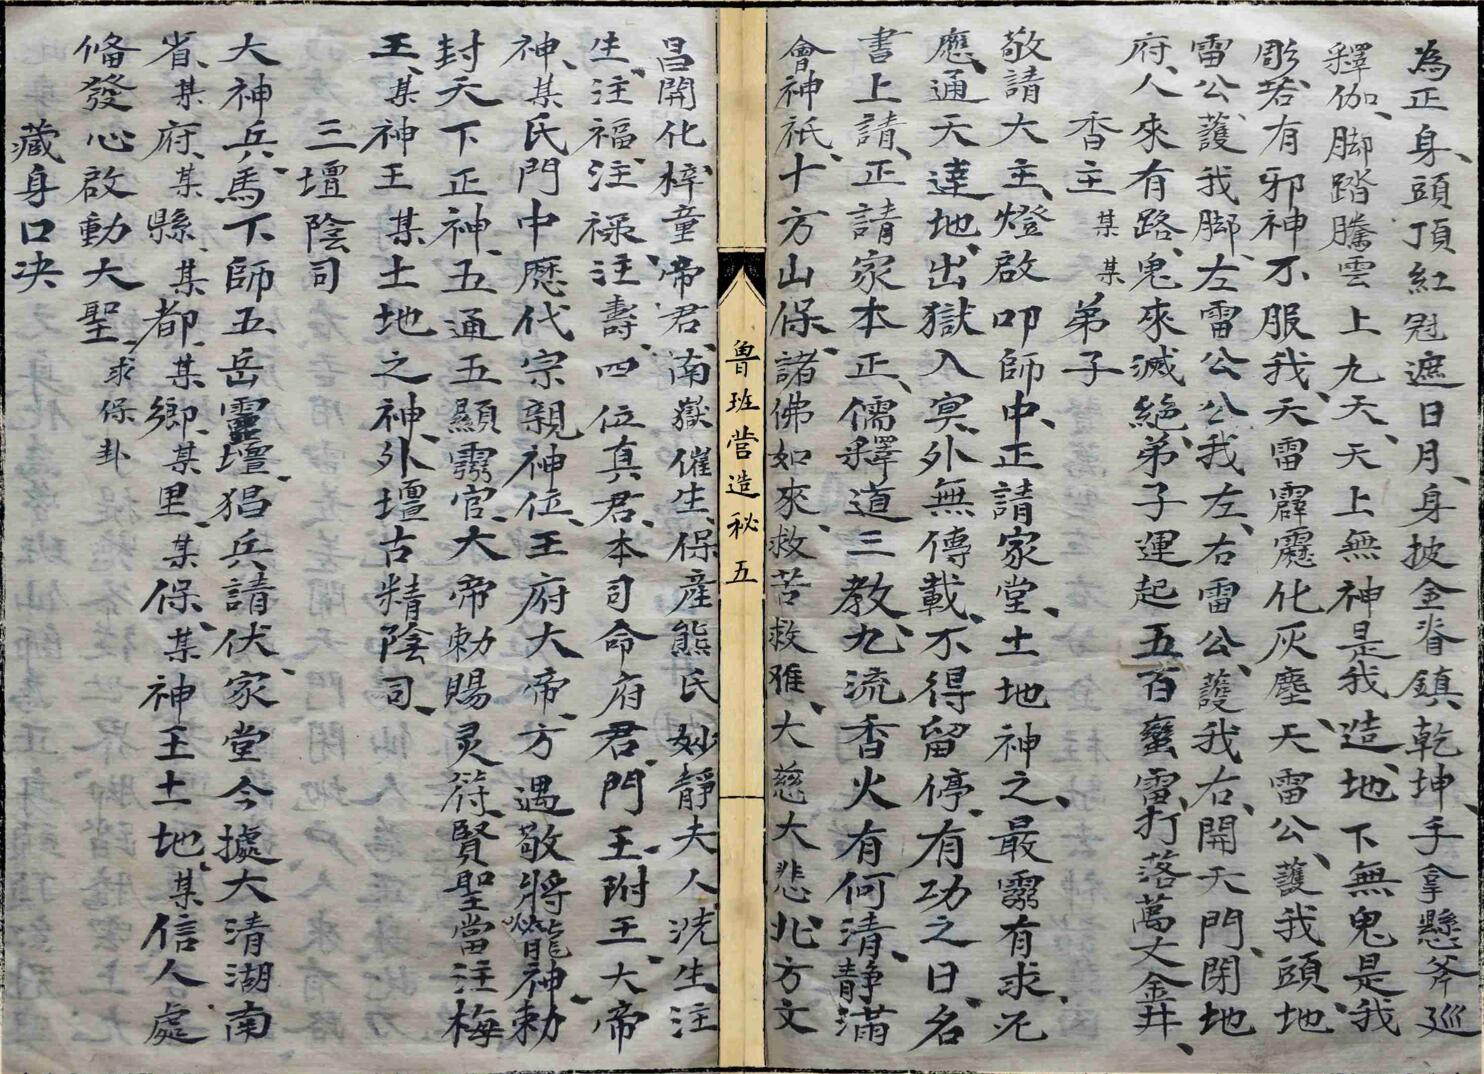 為正身、頭頂紅冠遮日月、身披金脊鎮乾坤、手拿懸斧巡
釋伽、脚踏騰雲上九天、天上無神是我造、地下無鬼是我
彫、若有邪神不服我、天雷霹靂化灰塵、天雷公、護我頭、地
雷公、護我脚、左雷公公我左、右雷公、護我右、開天門、閉地
府、人來有路、鬼來滅絕、弟子運起五百蠻雷、打落萬丈金井、
香主 某 某 弟子
敬請大主、燈啟叩師中、正請家堂、土地神之、最靈有求、冗
應、通天達地、出獄入冥、外無傳載、不得留停、有功之日、名
書上請、正請家本正、儒釋道三教、九流香火有何清靜、滿
會神祇、十方山保、諸佛如來、救苦救难、大慈大悲、北方文
魯班营造秘 五
昌開化、梓童帝君、南嶽催生、保産熊氏妙靜夫人、洗生、注
生、注福、注禄、注壽、四位真君、本司命府君、門王、附王、大帝
神、某氏門中歷代宗親神位、王府大帝、方遇敬將龍神、勅
封天下正神、五通五顯靈官、大帝勅賜灵符、賢聖當注梅
王、某神王某土地之神、外壇古精陰司、
三壇陰司
大神兵、馬下師五岳靈壇、猖兵請伏、家堂今據大清湖南
省、某府、某縣、某都、某鄉、某里、某保、某神王土地、某信人處
俻發心啟動大聖、求保卦
藏身口决